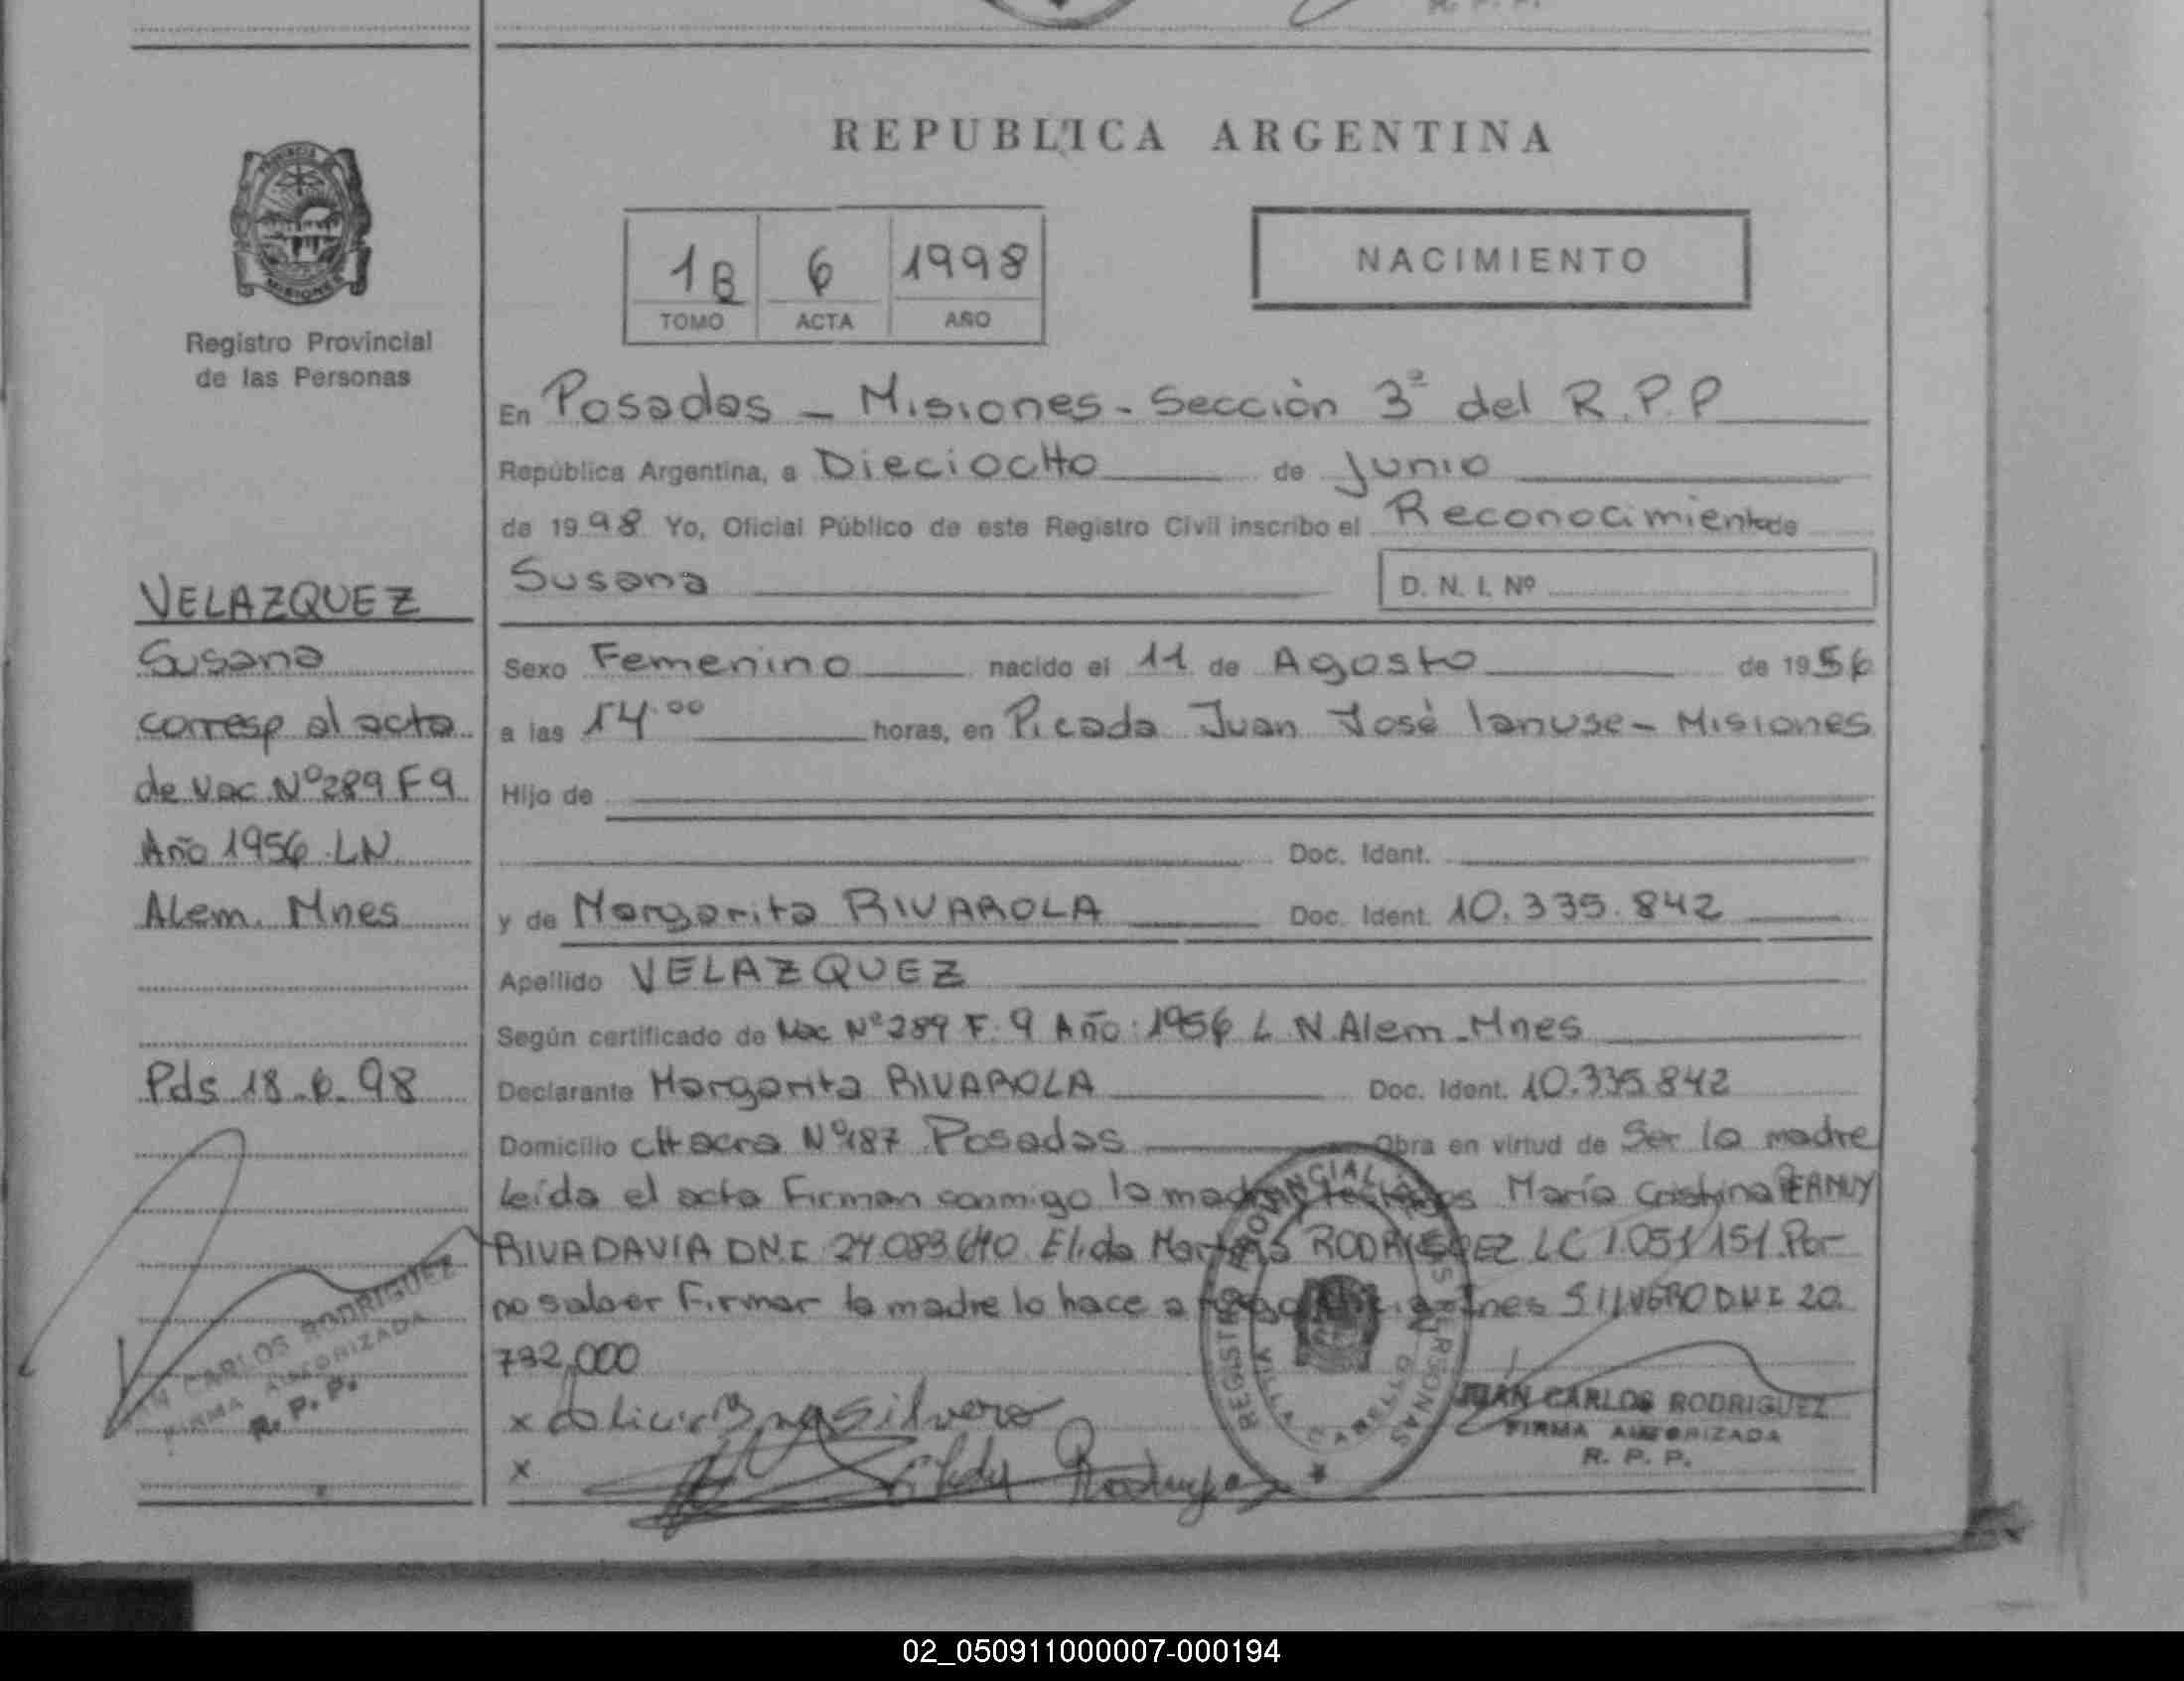 REPUBLICA ARGENTINA
PROVINCIA DE
MISIONES
Registro Provincial
de las Personas
1B 6 1998
TOMO ACTA AÑO
NACIMIENTO
En Posadas - Misiones - Sección 3ª del R.P.P
República Argentina, a DieciocHo de Junio
de 1998 Yo, Oficial Público de este Registro Civil inscribo el Reconocimiento de
Susana
D. N. I. Nº
Sexo Femenino nacido el 11 de Agosto de 1956
a las 14.00 horas, en Picada Juan José Ianuse - Misiones
Hijo de
Doc. Ident.
y de Margarita RIVAROLA Doc. Ident. 10.335.842
Apellido VELAZQUEZ
Según certificado de Nac Nº 289 F. 9 Año: 1956 L N Alem - Mnes
Declarante Margarita RIVAROLA Doc. Ident. 10.335.842
Domicilio cHacra Nº 187 Posadas Obra en virtud de Ser la madre
Leída el acta Firman conmigo la madre, testigos María Cristina
RIVADAVIA DNI 24.083.640 Elida RODRIGUEZ LC 1.051.151 Por
no saber Firmar la madre lo hace a Ines SILVERO DNI 20.
792,000
x silvero
x Elida Rodriguez
JUAN CARLOS RODRIGUEZ
FIRMA AUTORIZADA
R. P. P.
VELAZQUEZ
Susana
corresp al acta
de Nac Nº 289 F 9
Año 1956 LN
Alem. Mnes
Pds 18.6.98
JUAN CARLOS RODRIGUEZ
FIRMA AUTORIZADA
R. P. P.
REGISTRO PROVINCIAL DE LAS PERSONAS
VILLA CABELLO
R. P. P.
02_050911000007-000194